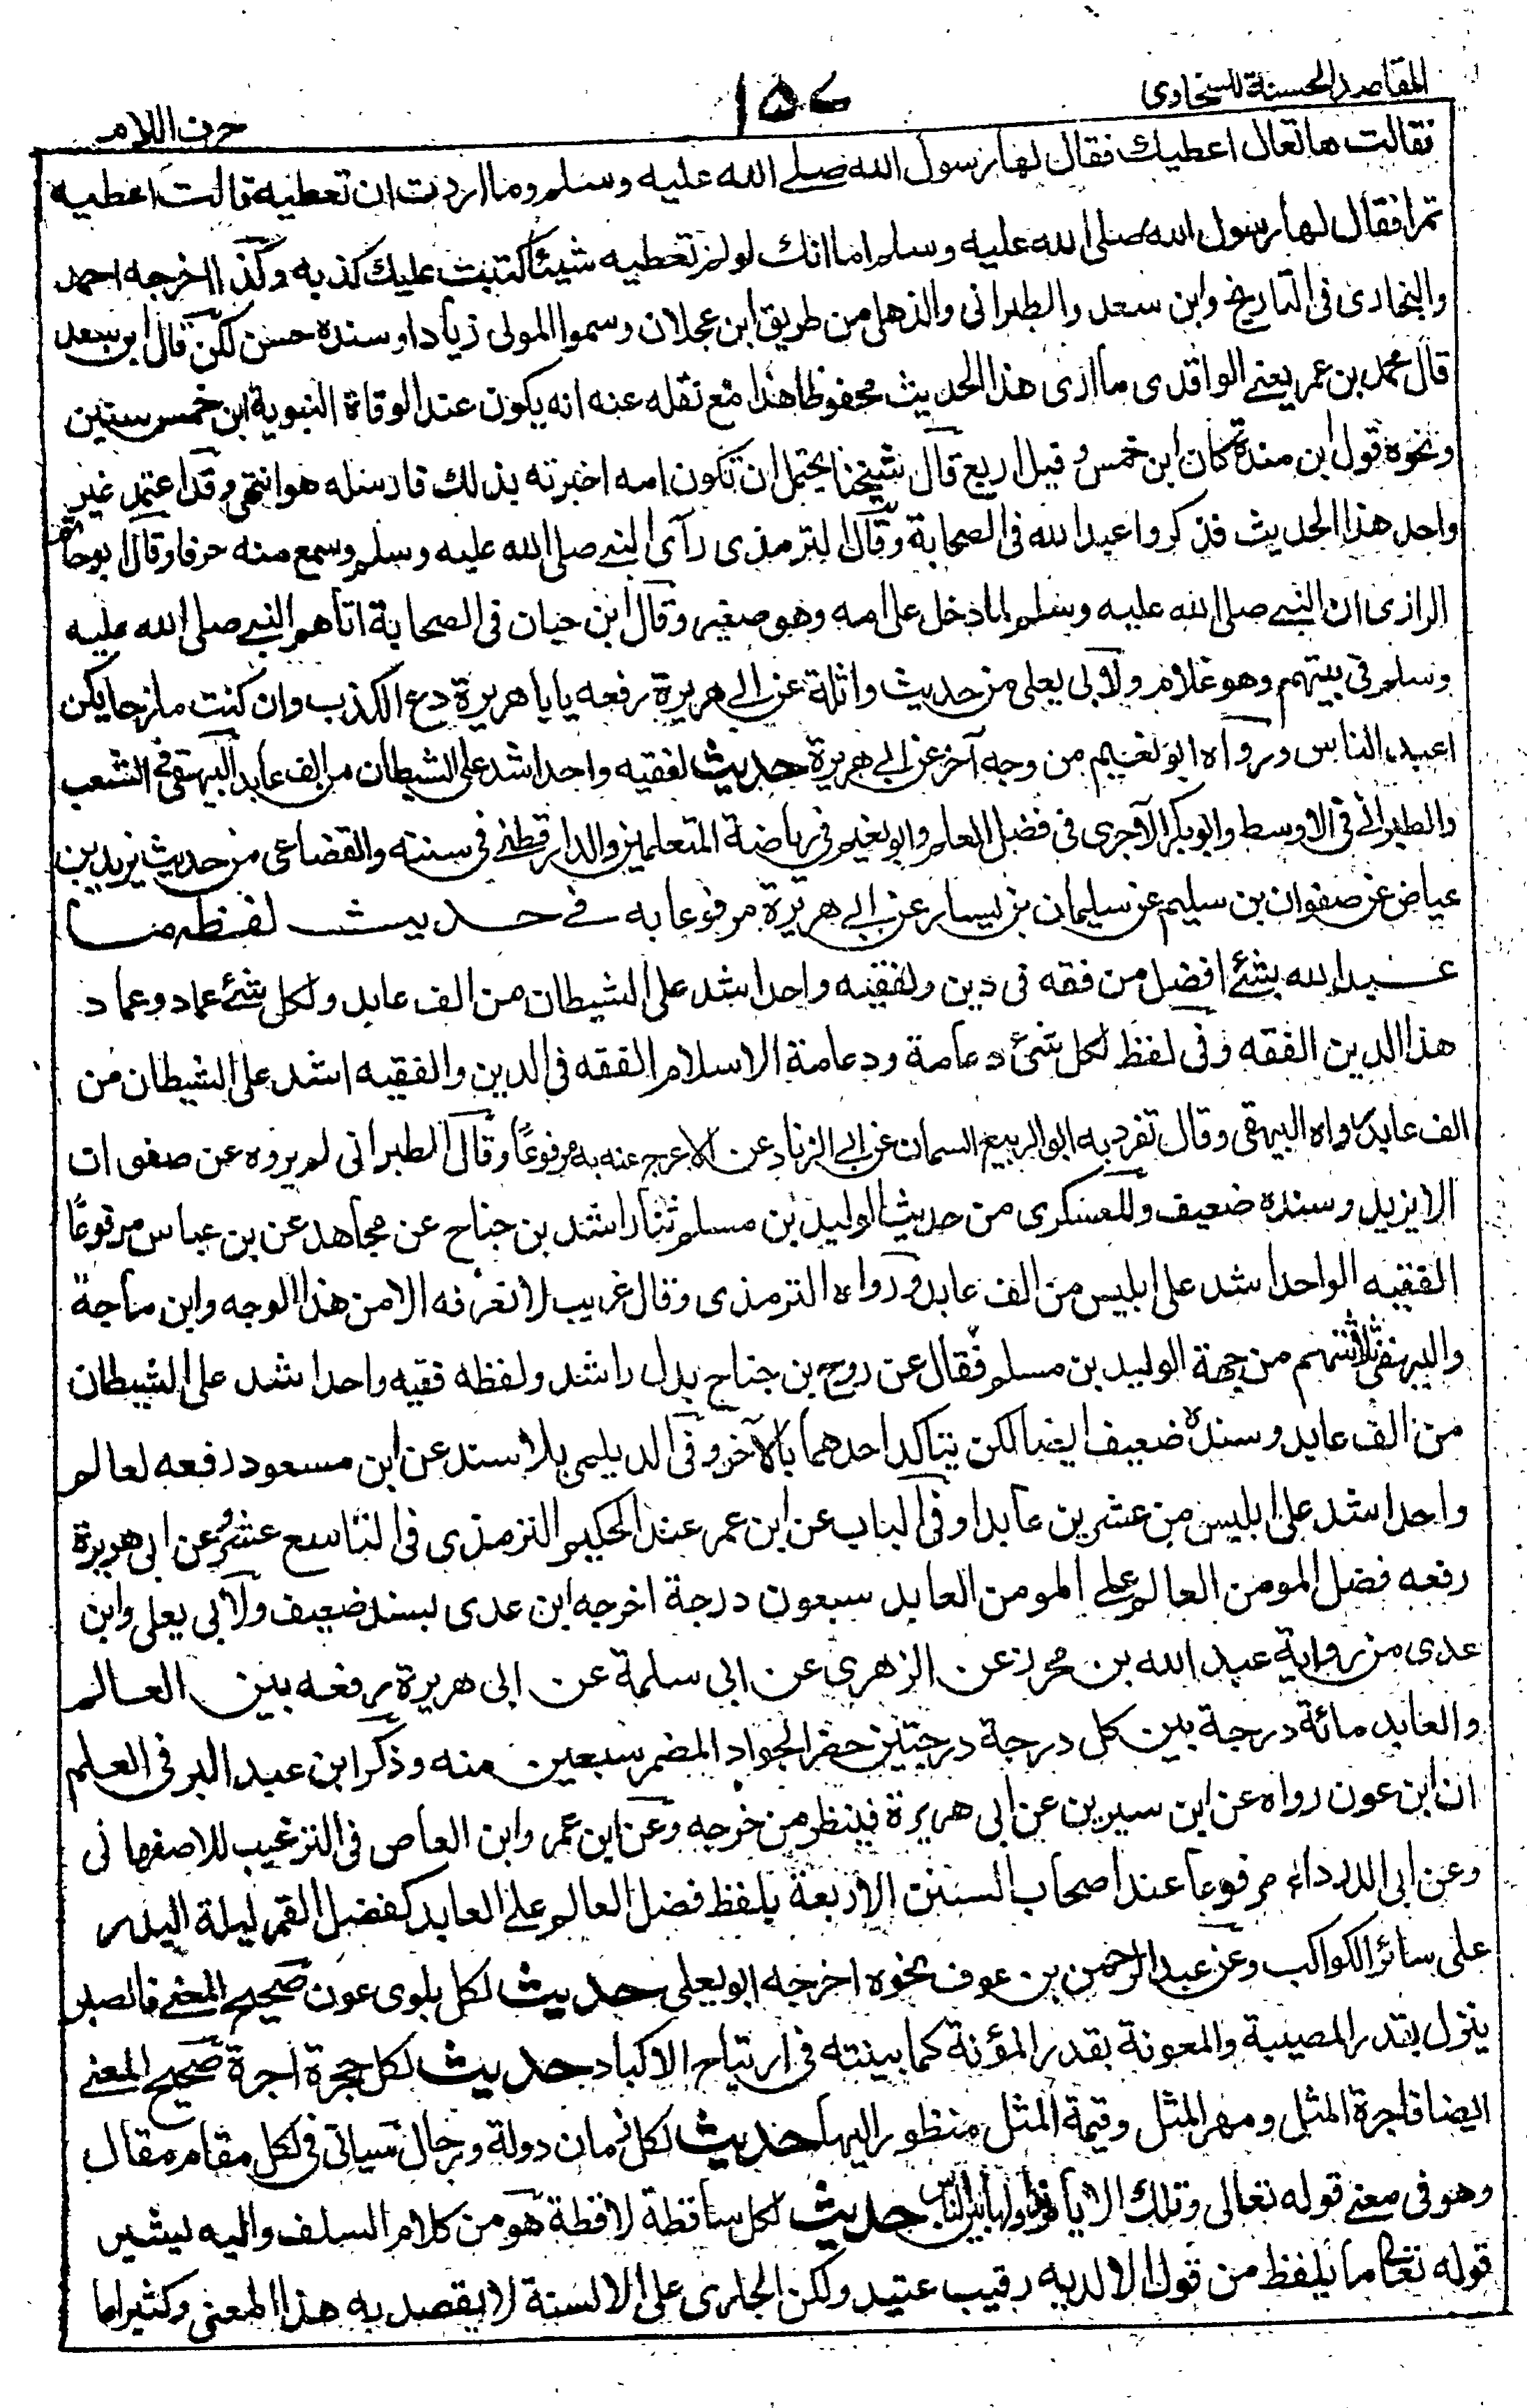 المقاصد الحسنة للسخاوى
١٥٧
حرف اللام
فقالت ها تعال اعطيك فقال لها رسول الله صلے الله عليه وسلم وما اردت ان تعطيه قالت اعطيه
تمرا فقال لها رسول الله صلى الله عليه وسلم اما انك لو لم تعطيه شيئا كتبت عليك كذبه وكذا اخرجه احمد
والبخارى فى التاريخ وابن سعد والطبرانى والذهلى من طريق ابن عجلان وسموا المولى زيادا وسنده حسن لكن قال ابن سعد
قال محمد بن عمر يعنے الواقدى ما ارى هذا الحديث محفوظا هذا مع نقله عنه انه يكون عند الوفاة النبوية ابن خمس سنين
ونحوه قول ابن مندة كان ابن خمس وقيل اربع قال شيخنا يحتمل ان تكون امه اخبرته بذلك فارسله هو انتهى وقد اعتمد غير
واحد هذا الحديث فذكروا عبد الله فى الصحابة وقال الترمذى رآى النبے صلى الله عليه وسلم وسمع منه حرفا وقال ابو حاتم
الرازى ان النبے صلى الله عليه وسلم لما دخل على امه وهو صغير وقال ابن حبان فى الصحابة اتاهم النبے صلى الله عليه
وسلم فى بيتهم وهو غلام ولابى يعلى من حديث واثلة عن ابے هريرة رفعه يا باهريرة دع الكذب وان كنت مازحا يكن
اعبد الناس ورواه ابو نعيم من وجه آخر عن ابے هريرة حديث لفقيه واحد اشد على الشيطان من الف عابد البيهقى فى الشعب
والطبرانے فى الاوسط وابو بكر الآجرى فى فضل العلم وابو نعيم فى رياضة المتعلمين والدار قطنے فى سننه والقضاعى من حديث يزيد بن
عياض عن صفوان بن سليم عن سليمان بن يسار عن ابے هريرة مرفوعا به فے حديث لفظه ما
عبد الله بشئ افضل من فقه فى دين ولفقيه واحد اشد على الشيطان من الف عابد ولكل شئ عماد وعماد
هذا الدين الفقه وفى لفظ لكل شئ دعامة ودعامة الاسلام الفقه فى الدين والفقيه اشد على الشيطان من
الف عابد رواه البيهقى وقال تفرد به ابو الربيع السمان عن ابے الزناد عن الاعرج عنه به مرفوعًا وقال الطبرانى لم يروه عن صفوان
الا يزيد وسنده ضعيف وللعسكرى من حديث الوليد بن مسلم ثنا راشد بن جناح عن مجاهد عن بن عباس مرفوعًا
الفقيه الواحد اشد على ابليس من الف عابد ورواه الترمذى وقال غريب لا نعرفه الا من هذا الوجه وابن ماجة
والبيهقى ثلاثتهم من جهة الوليد بن مسلم فقال عن روح بن جناح بدل راشد ولفظه فقيه واحد اشد على الشيطان
من الف عابد وسنده ضعيف ايضا لكن يتاكد احدهما بالآخر وفى الديلمى بلا سند عن ابن مسعود رفعه لعالم
واحد اشد على ابليس من عشرين عابدا وفى الباب عن ابن عمر عند الحكيم الترمذى فى التاسع عشر وعن ابى هريرة
رفعه فضل المومن العالم على المومن العابد سبعون درجة اخرجه ابن عدى بسند ضعيف ولابى يعلى وابن
عدى من رواية عبد الله بن محرز عن الزهرى عن ابى سلمة عن ابى هريرة رفعه بين العالم
والعابد مائة درجة بين كل درجة درجتين حضر الجواد المضمر سبعين منه وذكر ابن عبد البر فى العلم
ان ابن عون رواه عن ابن سيرين عن ابى هريرة فينظر من خرجه وعن ابن عمر وابن العاص فى الترغيب للاصفهانى
وعن ابى الدرداء مرفوعا عند اصحاب السنن الاربعة بلفظ فضل العالم على العابد كفضل القمر ليلة البدر
على سائر الكواكب وعن عبد الرحمن بن عوف نحوه اخرجه ابو يعلى حديث لكل بلوى عون صحيح المعنے فالصبر
ينزل بقدر المصيبة والمعونة بقدر المؤنة كما بينته فى ارتياح الاكباد حديث لكل حجرة اجرة صحيح المعنے
ايضا فاجرة المثل ومهر المثل وقيمة المثل منظور اليها حديث لكل زمان دولة ورجال سياتى فى لكل مقام مقال
وهو فى معنے قوله تعالى وتلك الايام نداولها بين الناس حديث لكل ساقطة لاقطة هو من كلام السلف واليه يشير
قوله تعالى ما يلفظ من قول الا لديه رقيب عتيد ولكن الجارى على الالسنة لا يقصد به هذا المعنى وكثيرا ما